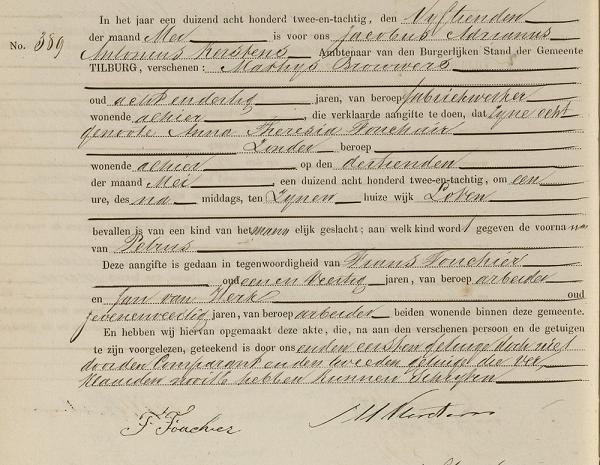 In het jaar een duizend acht honderd twee-en-tachtig, den Vyftienden
No. 389
der maand Mei is voor ons Jacobus Adrianus
Antonius Kerstens Ambtenaar van den Burgerlijken Stand der Gemeente
TILBURG, verschenen: Mathys Brouwers
oud acht en dertig jaren, van beroep fabriekwerker
wonende alhier, die verklaarde aangifte te doen, dat zyne echt
genoote Anna Theresia Fouchier
Zonder beroep
wonende alhier op den dertienden
der maand Mei, een duizend acht honderd twee-en-tachtig, om een
ure, des na middags, ten Zynen huize wijk Loven
bevallen is van een kind van het mann elijk geslacht; aan welk kind wordt gegeven de voorna am
van Petrus
Deze aangifte is gedaan in tegenwoordigheid van Frans Fouchier
oud een en veertig jaren, van beroep arbeider
en Jan van Herk oud
zevenenveertig jaren, van beroep arbeider beiden wonende binnen deze gemeente.
En hebben wij hiervan opgemaakt deze akte, die, na aan den verschenen persoon en de getuigen
te zijn voorgelezen, geteekend is door ons en den eersten getuige doch niet
door den Comparant en den tweeden getuige die ver
klaarden nooit te hebben kunnen schryven
F Fouchier